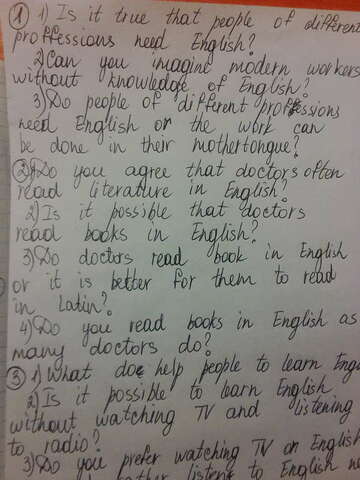 ① 1) Is it true that people of different
proffessions need English?
2) Can you imagine modern workers
without knowledge of English?
3) Do people of different proffessions
need English or the work can
be done in their mothertongue?
② 1) Do you agree that doctors often
read literature in English?
2) Is it possible that doctors
read books in English?
3) Do doctors read book in English
or it is better for them to read
in Latin?
4) Do you read books in English as
many doctors do?
③ 1) What does help people to learn Eng
2) Is it possible to learn English
without watching TV and listening
to radio?
3) Do you prefer watching TV on English
listene to English